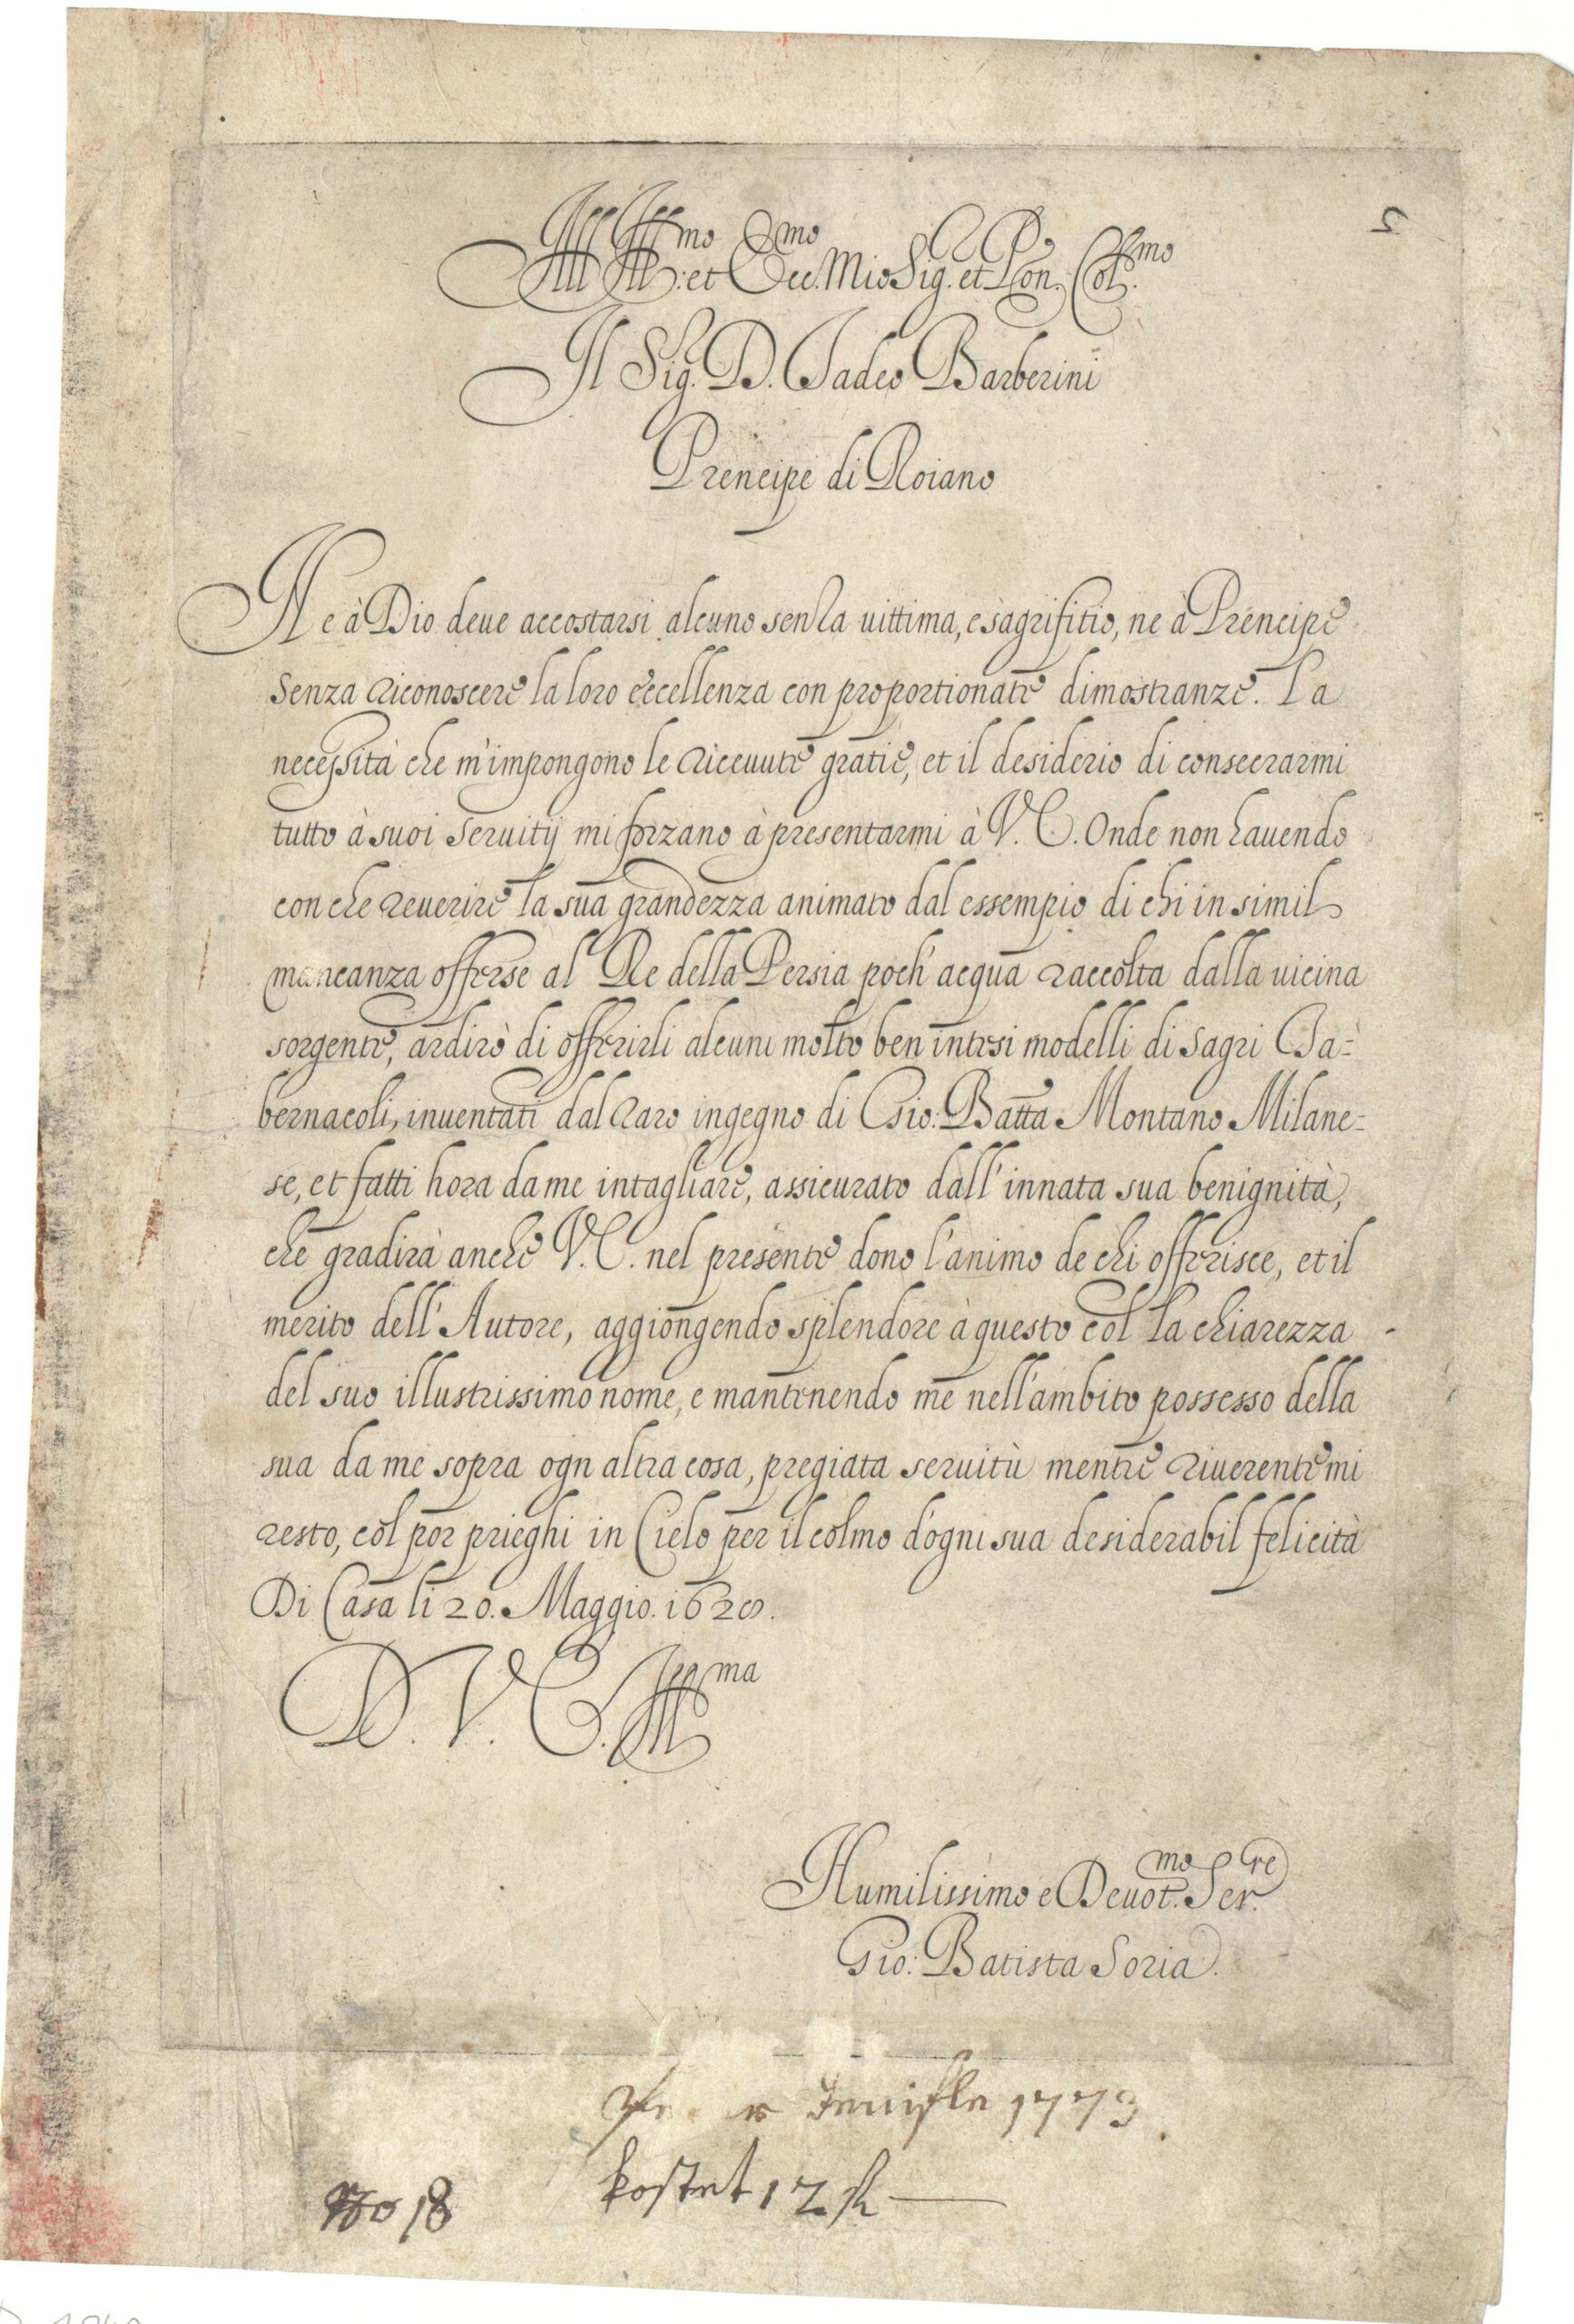 2
Ill. Ill.mo et Ecc.mo Mio Sig. et Pon. Col.mo
Il Sig. D. Tadeo Barberini
Prencipe di Roiano
Ne à Dio deue accostarsi alcuno senza uittima, e sagrifitio, ne à Prencipe
Senza riconoscere la loro eccellenza con proportionate dimostranze. La
necessità che m'impongono le riceuute gratie, et il desiderio di consecrarmi
tutto à suoi seruitij mi forzano à presentarmi à V. E. Onde non hauendo
con che reuerire la sua grandezza animato dal essempio di chi in simil
mancanza offerse al Re della Persia poch' acqua raccolta dalla uicina
sorgente, ardirò di offerirli alcuni molto ben intesi modelli di Sagri Ta=
bernacoli, inuentati dal raro ingegno di Gio: Batta Montano Milane=
se, et fatti hora da me intagliare, assicurato dall' innata sua benignità,
che gradirà anche V. E. nel presente dono l'animo de chi offerisce, et il
merito dell' Autore, aggiongendo splendore à questo col la chiarezza
del suo illustrissimo nome, e mantenendo me nell'ambito possesso della
sua da me sopra ogn altra cosa, pregiata seruitù mentre riuerente mi
resto, col por prieghi in Cielo per il colmo d'ogni sua desiderabil felicità
Di Casa li 20. Maggio. 1628.
D. V. E. Ill.ma
Humilissimo e Deuot.mo Ser.re
Gio: Batista Soria.
1773
kostet 12
No 18